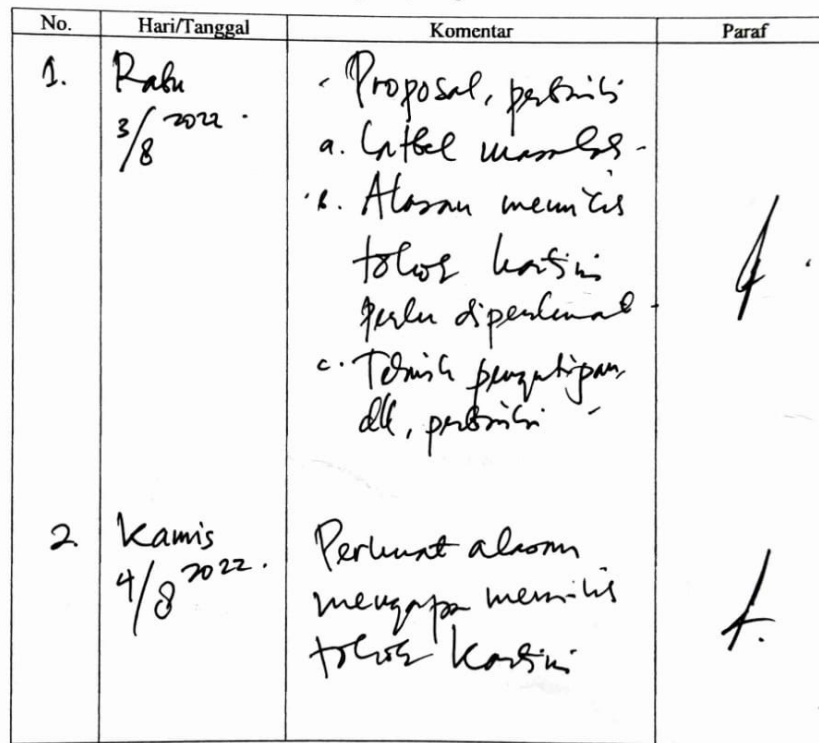 No. Hari/Tanggal Komentar Paraf
1. Rabu
3/8 2022.
- Proposal, perbaiki
a. Latbel masalah -
b. Alasan memilih
tokoh kartini
perlu diperkuat -
c. Teknik pengutipan,
dll, perbaiki -
2. Kamis
4/8 2022.
Perkuat alasan
mengapa memilih
tokoh Kartini